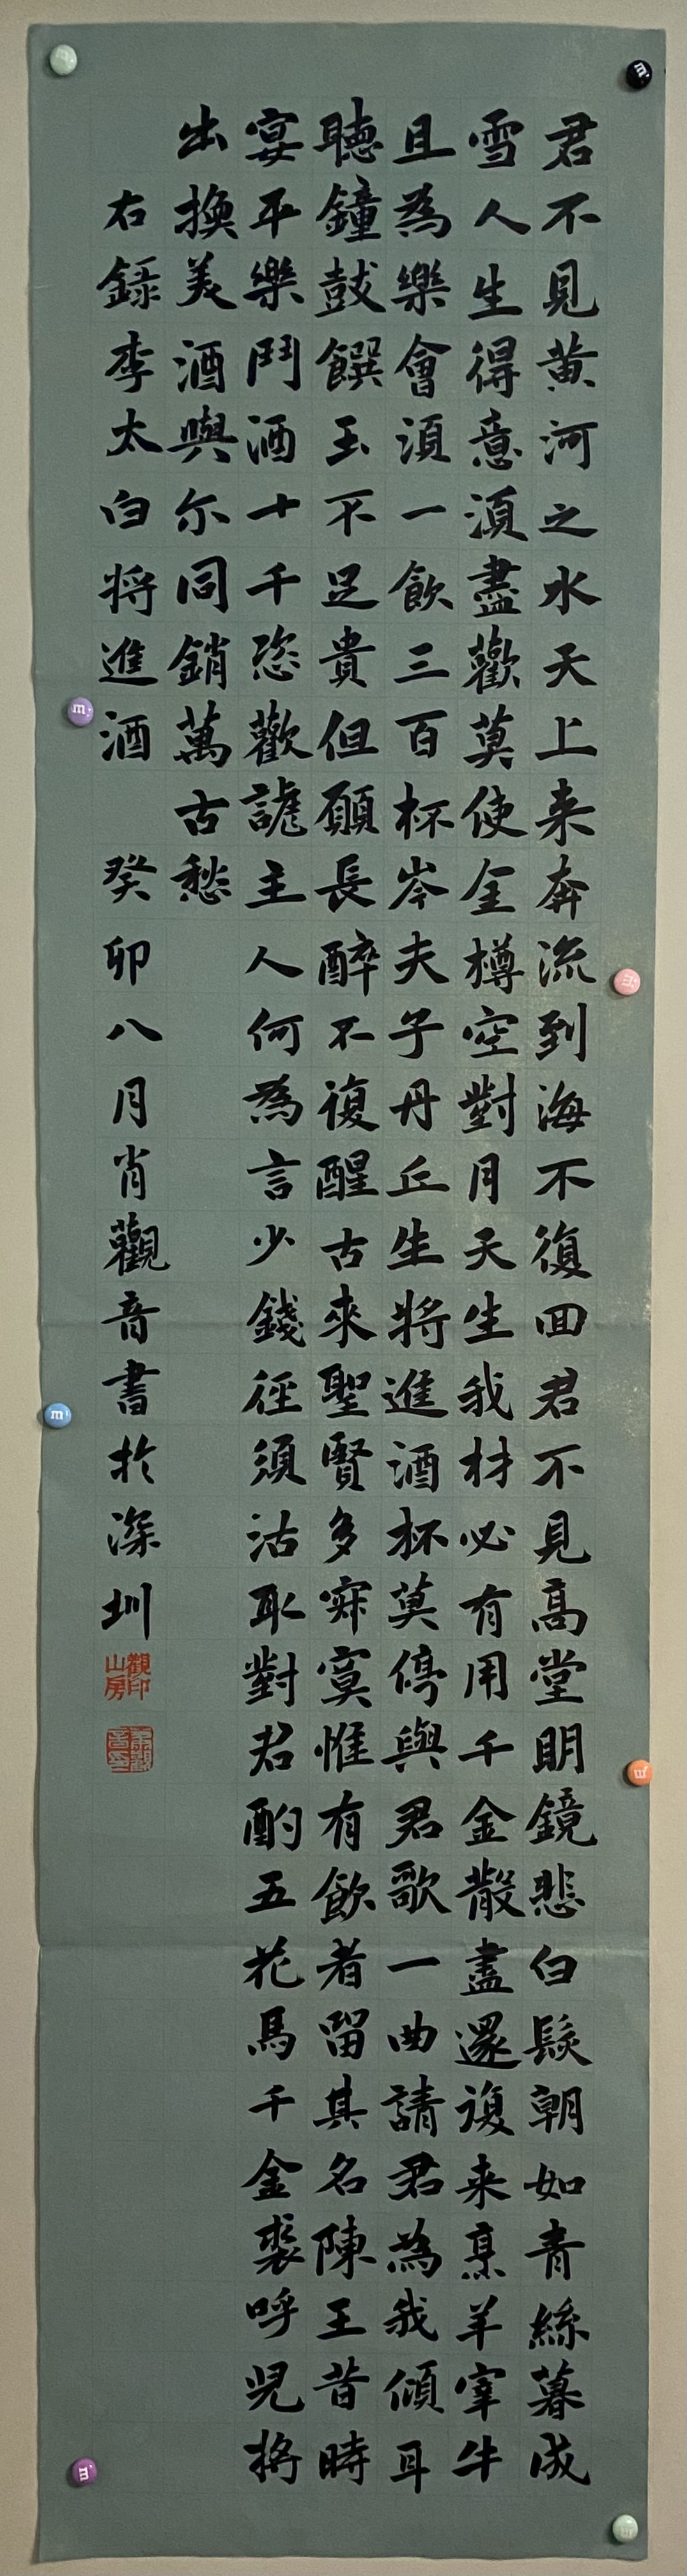 君不見黃河之水天上来奔流到海不復回君不見高堂明鏡悲白髮朝如青絲暮成
雪人生得意須盡歡莫使金樽空對月天生我材必有用千金散盡還復来烹羊宰牛
且為樂會須一飲三百杯岑夫子丹丘生將進酒杯莫停與君歌一曲請君為我傾耳
聽鐘鼓饌玉不足貴但願長醉不復醒古來聖賢多寂寞惟有飲者留其名陳王昔時
宴平樂鬥酒十千恣歡謔主人何為言少錢徑須沽取對君酌五花馬千金裘呼児將
出換美酒與尔同銷萬古愁
右錄李太白將進酒 癸卯八月肖觀音書於深圳
觀印山房
肖觀音印